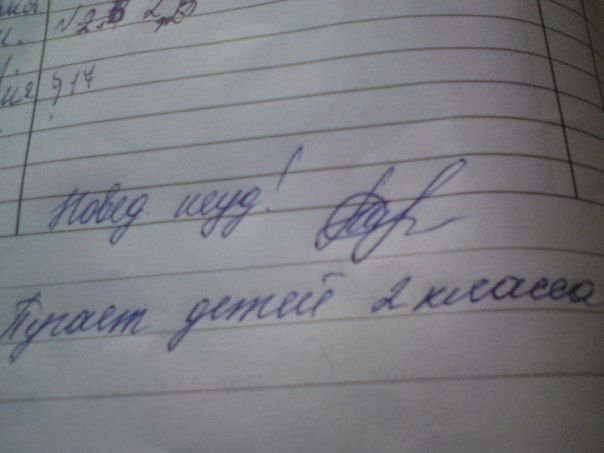 мия
N 2,
§ 17
Повед. неуд!
Пугает детей 2 класса